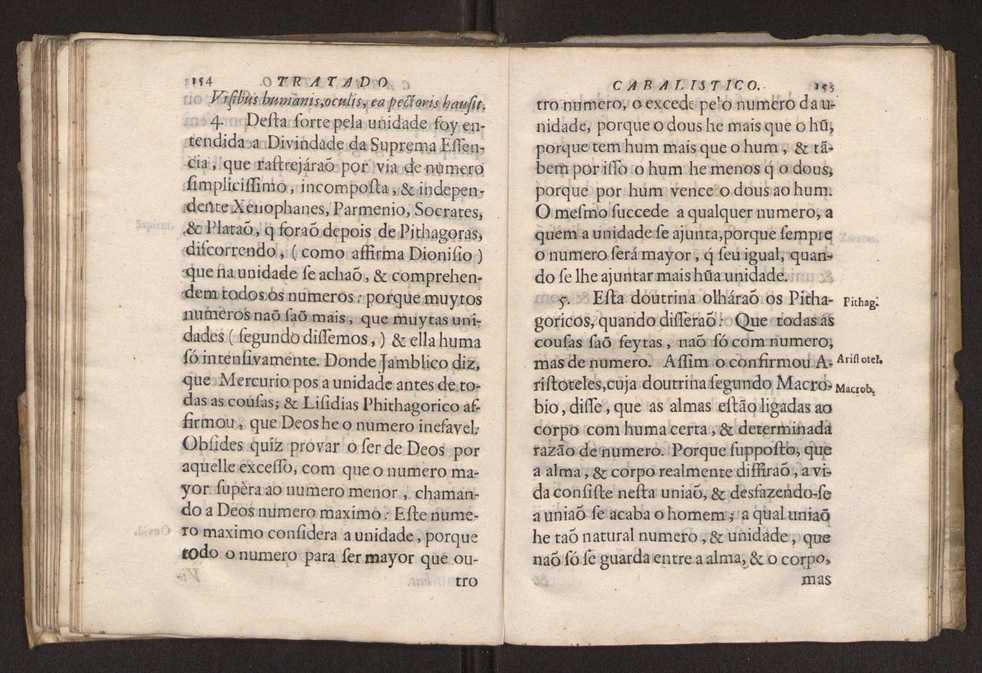 154 O TRATADO
Visibus humanis, oculis, ea pectoris hausit.
4. Desta sorte pela unidade foy en-
tendida a Divindade da Suprema Essen-
cia, que rastrejáraõ por via de numero
simplicissimo, incomposta, & indepen-
dente Xenophanes, Parmenio, Socrates,
& Plataõ, q̃ foraõ depois de Pithagoras,
discorrendo, (como affirma Dionisio)
que na unidade se achaõ, & comprehen-
dem todos os numeros: porque muytos
numeros naõ saõ mais, que muytas uni-
dades (segundo dissemos,) & ella huma
só intensivamente. Donde Jamblico diz,
que Mercurio pos a unidade antes de to-
das as cousas; & Lisidias Phithagorico af-
firmou, que Deos he o numero inefavel.
Obsides quiz provar o ser de Deos por
aquelle excesso, com que o numero ma-
yor supèra ao numero menor, chaman-
do a Deos numero maximo: Este nume-
ro maximo considera a unidade, porque
todo o numero para ser mayor que ou-
tro
CABALISTICO. 153
tro numero, o excede pe'o numero da u-
nidade, porque o dous he mais que o hũ,
porque tem hum mais que o hum, & tã-
bem por isso o hum he menos q̃ o dous,
porque por hum vence o dous ao hum.
O mesmo succede a qualquer numero, a
quem a unidade se ajunta, porque sempre
o numero será mayor, q̃ seu igual, quan-
do se lhe ajuntar mais hũa unidade.
5. Esta doutrina olháraõ os Pitha-
Pithag.
goricos, quando disseraõ: Que todas as
cousas saõ feytas, naõ só com numero,
mas de numero. Assim o confirmou A-
Aristotel.
ristoteles, cuja doutrina segundo Macro-
Macrob.
bio, disse, que as almas estão ligadas ao
corpo com huma certa, & determinada
razão de numero. Porque supposto, que
a alma, & corpo realmente diffiraõ, a vi-
da consiste nesta uniaõ, & desfazendo-se
a uniaõ se acaba o homem; a qual uniaõ
he taõ natural numero, & unidade, que
naõ só se guarda entre a alma, & o corpo,
mas